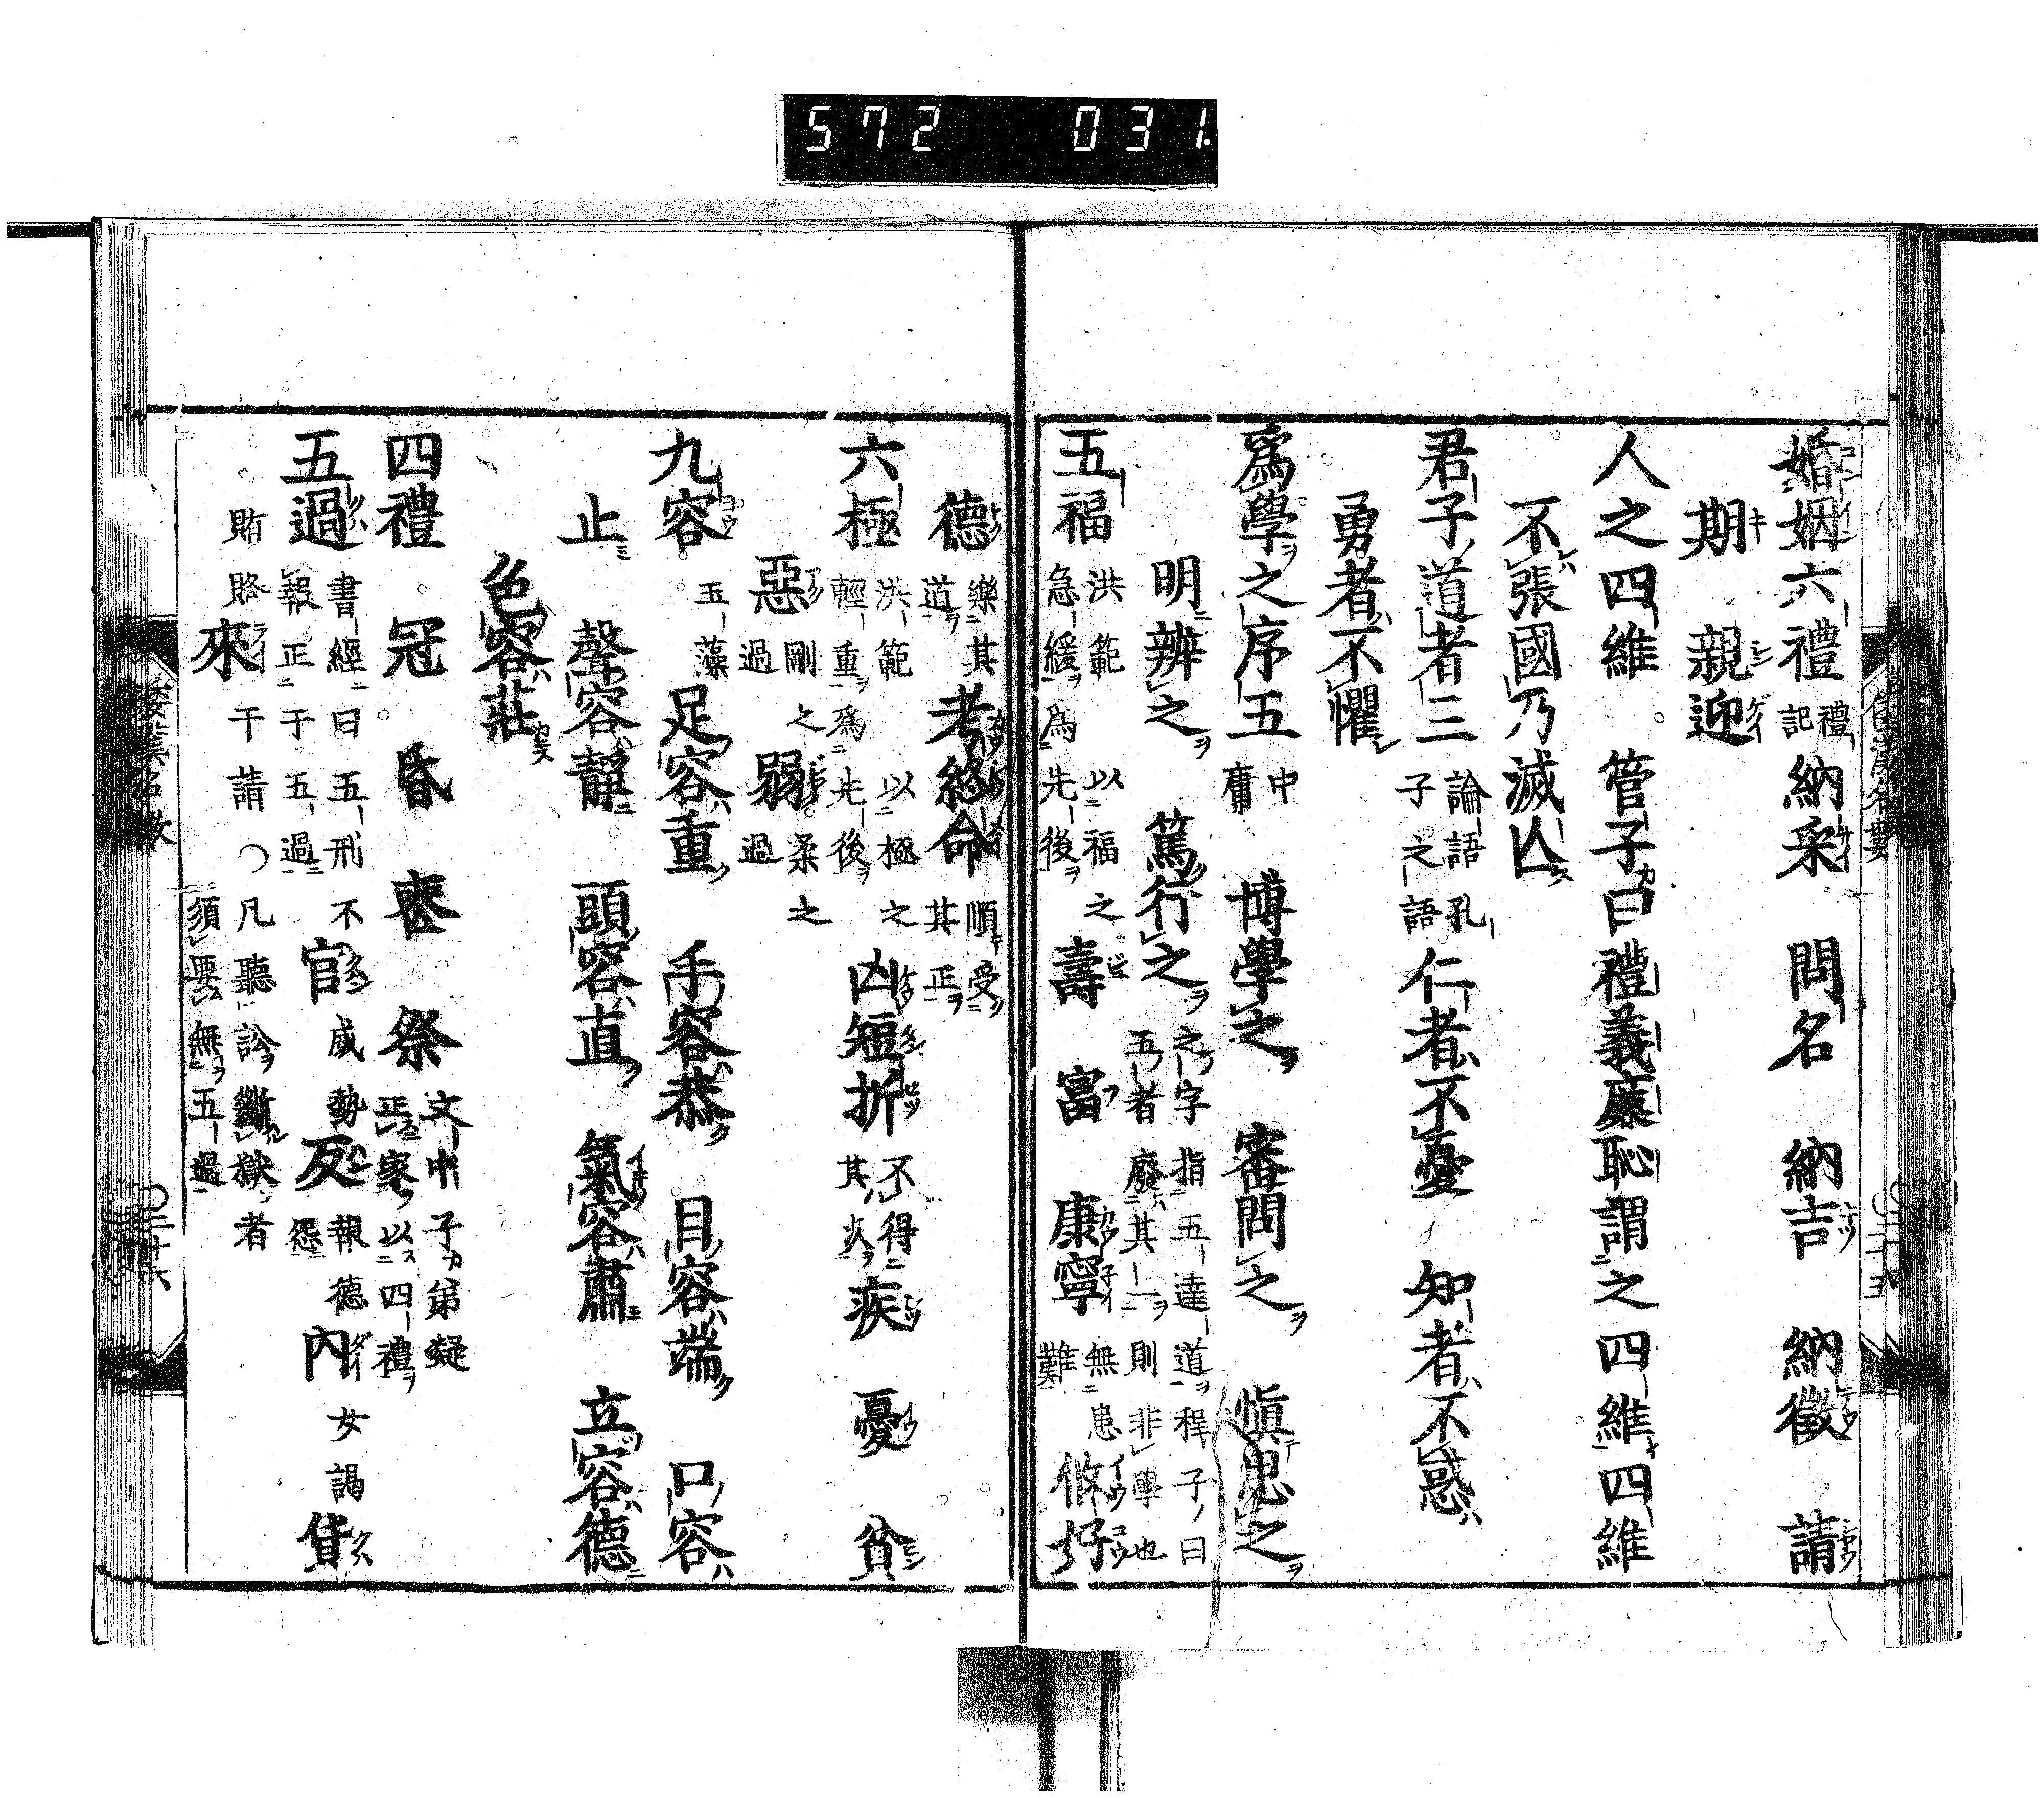 572 031
婚姻六禮 禮記 納采 問名 納吉 納徵 請
期 親迎
人之四維 管子曰禮義廉恥謂之四維四維
不張國乃滅亾
君子道者三 論語孔子之語 仁者不憂 知者不惑
勇者不懼
爲學之序五 中庸 博學之 審問之 愼思之
明辨之 篤行之 之字指五達道程子曰五者廢其一則非學也
五福 洪範 以福之急緩爲先後 壽 富 康寧 無患難 攸好
德 樂其道 考終命 順受其正
六極 洪範 以極之輕重爲先後 凶短折 不得其 疾 憂 貧
惡 剛之過 弱 柔之過
九容 玉藻 足容重 手容恭 目容端 口容
止 聲容靜 頭容直 氣容肅 立容德
色容莊
四禮 冠 昏 喪 祭 文中子第礙正家以四禮
五過 書經曰五刑不報正于五過 官 威勢 反 報德怨 內 女謁 貨
賄賂 來 干請○凡聽訟斷獄者須要無五過